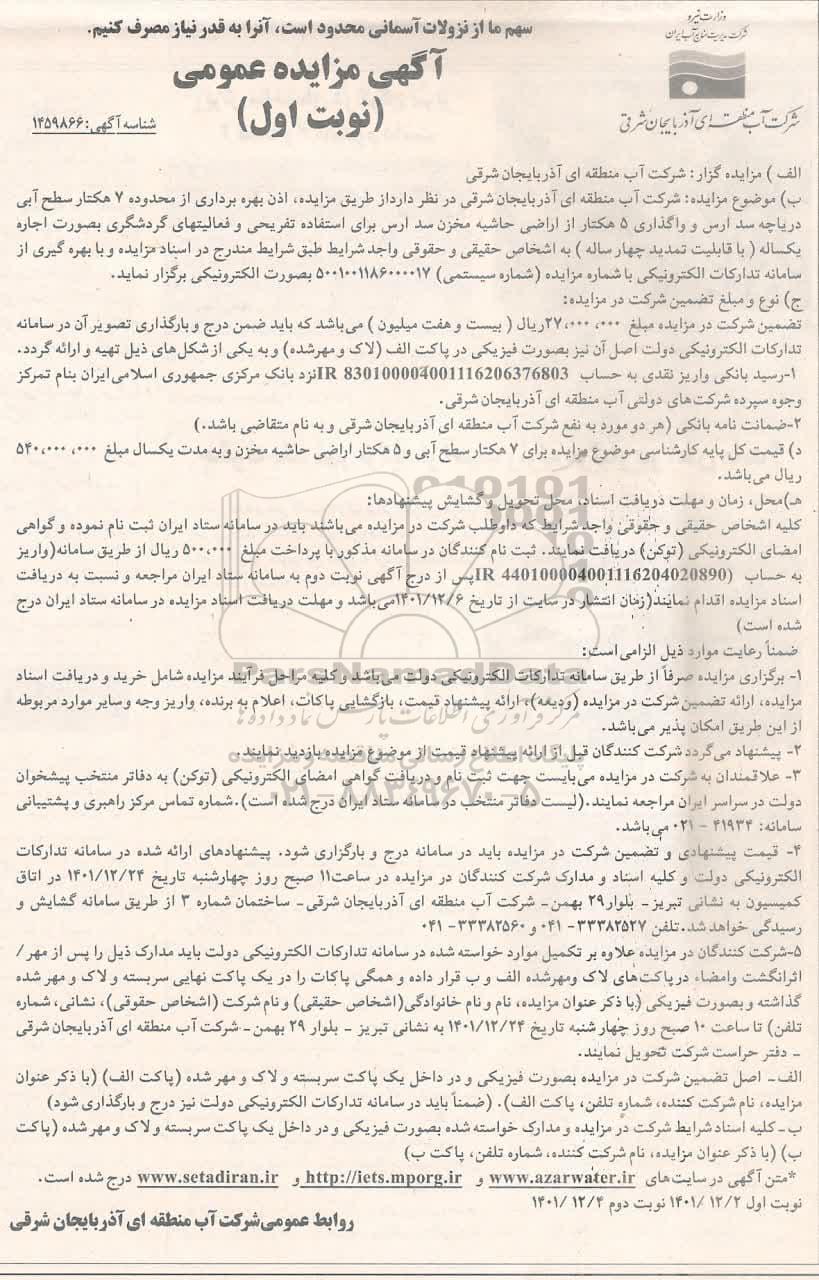 سهم ما از نزولات آسمانی محدود است، آنرا به قدر نیاز مصرف کنیم.
وزارت نیرو
شرکت مدیریت منابع آب ایران
شرکت آب منطقه ای آذربایجان شرقی
آگهی مزایده عمومی
(نوبت اول)
شناسه آگهی: ۱۴۵۹۸۶۶
الف ) مزایده گزار: شرکت آب منطقه ای آذربایجان شرقی
ب) موضوع مزایده: شرکت آب منطقه ای آذربایجان شرقی در نظر دارداز طریق مزایده، اذن بهره برداری از محدوده ۷ هکتار سطح آبی
دریاچه سد ارس و واگذاری ۵ هکتار از اراضی حاشیه مخزن سد ارس برای استفاده تفریحی و فعالیتهای گردشگری بصورت اجاره
یکساله ( با قابلیت تمدید چهار ساله ) به اشخاص حقیقی و حقوقی واجد شرایط طبق شرایط مندرج در اسناد مزایده و با بهره گیری از
سامانه تدارکات الکترونیکی با شماره مزایده (شماره سیستمی) ۵۰۰۱۰۰۱۱۸۶۰۰۰۰۱۷ بصورت الکترونیکی برگزار نماید.
ج) نوع و مبلغ تضمین شرکت در مزایده:
تضمین شرکت در مزایده مبلغ ۲۷،۰۰۰ ،۰۰۰ریال ( بیست و هفت میلیون ) می‌باشد که باید ضمن درج و بارگذاری تصویر آن در سامانه
تدارکات الکترونیکی دولت اصل آن نیز بصورت فیزیکی در پاکت الف (لاک و مهرشده) و به یکی از شکل‌های ذیل تهیه و ارائه گردد.
۱-رسید بانکی واریز نقدی به حساب IR 830100004001116206376803نزد بانک مرکزی جمهوری اسلامی ایران بنام تمرکز
وجوه سپرده شرکت‌های دولتی آب منطقه ای آذربایجان شرقی.
۲-ضمانت نامه بانکی (هر دو مورد به نفع شرکت آب منطقه ای آذربایجان شرقی و به نام متقاضی باشد.)
د) قیمت کل پایه کارشناسی موضوع مزایده برای ۷ هکتار سطح آبی و ۵ هکتار اراضی حاشیه مخزن و به مدت یکسال مبلغ ۵۴۰،۰۰۰ ،۰۰۰
ریال می‌باشد.
هـ)محل، زمان و مهلت دریافت اسناد، محل تحویل و گشایش پیشنهادها:
کلیه اشخاص حقیقی و حقوقی واجد شرایط که داوطلب شرکت در مزایده می‌باشند باید در سامانه ستاد ایران ثبت نام نموده و گواهی
امضای الکترونیکی (توکن) دریافت نمایند. ثبت نام کنندگان در سامانه مذکور با پرداخت مبلغ ۵۰۰،۰۰۰ ریال از طریق سامانه(واریز
به حساب (IR 440100004001116204020890پس از درج آگهی نوبت دوم به سامانه ستاد ایران مراجعه و نسبت به دریافت
اسناد مزایده اقدام نمایند(زمان انتشار در سایت از تاریخ ۱۴۰۱/۱۲/۶می‌باشد و مهلت دریافت اسناد مزایده در سامانه ستاد ایران درج
شده است)
ضمناً رعایت موارد ذیل الزامی است:
۱- برگزاری مزایده صرفاً از طریق سامانه تدارکات الکترونیکی دولت می‌باشد و کلیه مراحل فرآیند مزایده شامل خرید و دریافت اسناد
مزایده، ارائه تضمین شرکت در مزایده (ودیعه)، ارائه پیشنهاد قیمت، بازگشایی پاکات، اعلام به برنده، واریز وجه وسایر موارد مربوطه
از این طریق امکان پذیر می‌باشد.
۲- پیشنهاد می‌گردد شرکت کنندگان قبل از ارائه پیشنهاد قیمت از موضوع مزایده بازدید نمایند.
۳- علاقمندان به شرکت در مزایده می‌بایست جهت ثبت نام و دریافت گواهی امضای الکترونیکی (توکن) به دفاتر منتخب پیشخوان
دولت در سراسر ایران مراجعه نمایند.(لیست دفاتر منتخب در سامانه ستاد ایران درج شده است).شماره تماس مرکز راهبری و پشتیبانی
سامانه: ۴۱۹۳۴ - ۰۲۱ می‌باشد.
۴- قیمت پیشنهادی و تضمین شرکت در مزایده باید در سامانه درج و بارگزاری شود. پیشنهادهای ارائه شده در سامانه تدارکات
الکترونیکی دولت و کلیه اسناد و مدارک شرکت کنندگان در مزایده در ساعت۱۱ صبح روز چهارشنبه تاریخ ۱۴۰۱/۱۲/۲۴ در اتاق
کمیسیون به نشانی تبریز- بلوار۲۹ بهمن- شرکت آب منطقه ای آذربایجان شرقی- ساختمان شماره ۳ از طریق سامانه گشایش و
رسیدگی خواهد شد.تلفن ۳۳۳۸۲۵۲۷- ۰۴۱ و ۳۳۳۸۲۵۶۰- ۰۴۱
۵-شرکت کنندگان در مزایده علاوه بر تکمیل موارد خواسته شده در سامانه تدارکات الکترونیکی دولت باید مدارک ذیل را پس از مهر /
اثرانگشت وامضاء درپاکت‌های لاک ومهرشده الف و ب قرار داده و همگی پاکات را در یک پاکت نهایی سربسته و لاک و مهر شده
گذاشته و بصورت فیزیکی (با ذکر عنوان مزایده، نام و نام خانوادگی(اشخاص حقیقی) و نام شرکت (اشخاص حقوقی)، نشانی، شماره
تلفن) تا ساعت ۱۰ صبح روز چهارشنبه تاریخ ۱۴۰۱/۱۲/۲۴ به نشانی تبریز - بلوار ۲۹ بهمن- شرکت آب منطقه ای آذربایجان شرقی
- دفتر حراست شرکت تحویل نمایند.
الف- اصل تضمین شرکت در مزایده بصورت فیزیکی و در داخل یک پاکت سربسته و لاک و مهر شده (پاکت الف) (با ذکر عنوان
مزایده، نام شرکت کننده، شماره تلفن، پاکت الف). (ضمناً باید در سامانه تدارکات الکترونیکی دولت نیز درج و بارگذاری شود)
ب- کلیه اسناد شرایط شرکت در مزایده و مدارک خواسته شده بصورت فیزیکی و در داخل یک پاکت سربسته و لاک و مهر شده (پاکت
ب) (با ذکر عنوان مزایده، نام شرکت کننده، شماره تلفن، پاکت ب)
*متن آگهی در سایت‌های www.azarwater.ir و http://iets.mporg.ir و www.setadiran.ir درج شده است.
نوبت اول ۱۲/۲ /۱۴۰۱ نوبت دوم ۱۲/۴ /۱۴۰۱
روابط عمومی شرکت آب منطقه ای آذربایجان شرقی
ParsNamadData
مرکز فرآوری اطلاعات پارس نماد داده‌ها
پایگاه اطلاع رسانی مناقصه و مزایده
۰۲۱-۸۸۳۴۹۶۷۰-۵